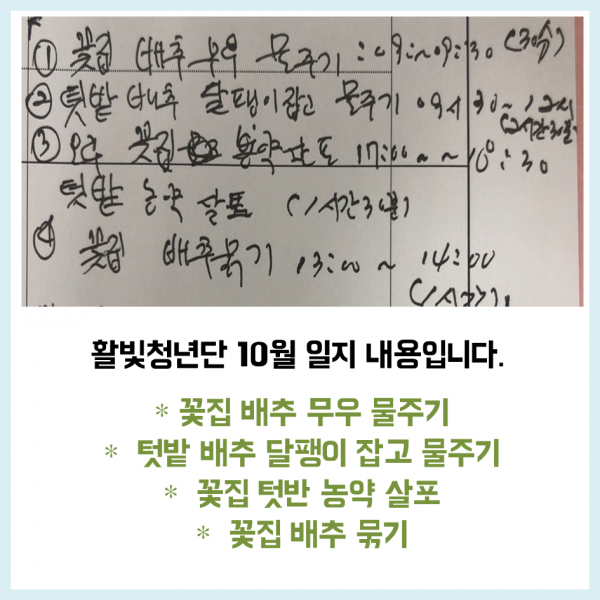 ① 꽃집 배추 무우 물주기 : 09:~09:30 (30분)
② 텃밭 배추 달팽이잡고 물주기 09시 30~12시
(2시간30분)
③ 오후 꽃집 농약살포 17:00~ ~ 18:30
텃밭 농약 살포 (1시간30분)
④ 꽃집 배추묶기 13:00 ~ 14:00
(1시간)
활빛청년단 10월 일지 내용입니다.
* 꽃집 배추 무우 물주기
* 텃밭 배추 달팽이 잡고 물주기
* 꽃집 텃반 농약 살포
* 꽃집 배추 묶기